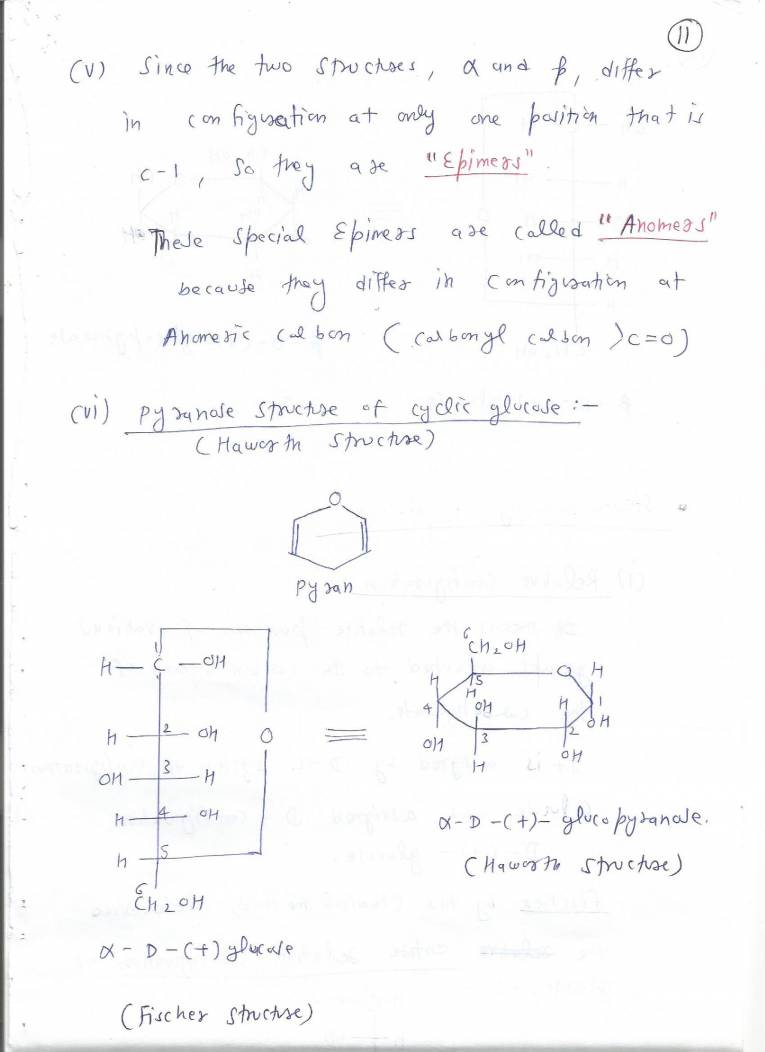 11
(v) Since the two structures, α and β, differ
in configuration at only one position that is
C-1, so they are "Epimers".
These special Epimers are called "Anomers"
because they differ in configuration at
Anomeric carbon (carbonyl carbon >C=O)
(vi) Pyranose structure of cyclic glucose :-
(Haworth structure)
O
Pyran
1
H C OH
H 2 OH O
OH 3 H
H 4 OH
H 5
6
CH2OH
α - D - (+) glucose
(Fischer structure)
≡
6
CH2OH
H 5 O H
H
4 OH H 1
OH 3 2 OH
H OH
α-D-(+)- glucopyranose.
(Haworth structure)